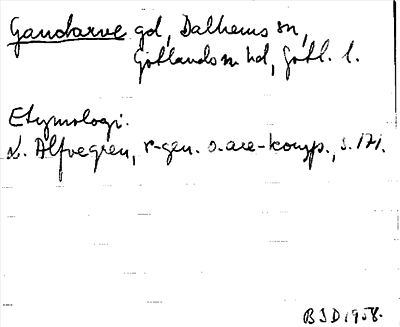 Gandarve gd, Dalhems sn,
Gotlands n hd, Gotl. l.
Etymologi.
L. Alfvegren, r-gen. o. are-komp., s. 171.
BID 1958.